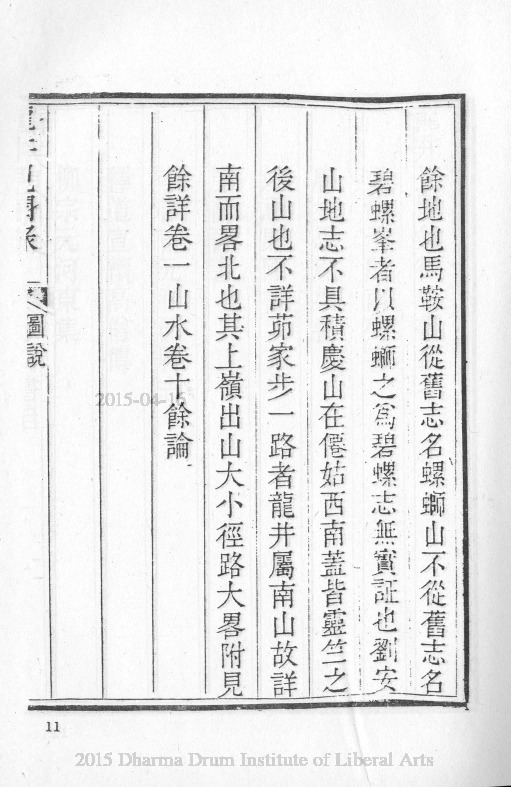 餘地也馬鞍山從舊志名螺螄山不從舊志名
碧螺峯者以螺螄之為碧螺志無實証也劉安
山地志不具積慶山在僊姑西南蓋皆靈竺之
後山也不詳茆家步一路者龍井屬南山故詳
南而畧北也其上嶺出山大小徑路大畧附見
餘詳卷一山水卷十餘論
龍井見聞录 圖說
11
2015-04-15
2015 Dharma Drum Institute of Liberal Arts